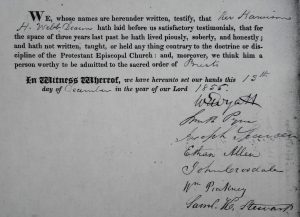 WE, whose names are hereunder written, testify, that Rev Harrison
H. Webb Deacon hath laid before us satisfactory testimonials, that for
the space of three years last past he hath lived piously, soberly, and honestly;
and hath not written, taught, or held any thing contrary to the doctrine or dis-
cipline of the Protestant Episcopal Church: and, moreover, we think him a
person worthy to be admitted to the sacred order of Priests
In Witness Whereof, we have hereunto set our hands this 15th
day of December in the year of our Lord 1856.
W E Wyatt
Joseph
Ethan Allen
John Crosdale
Wm Pinkney
Saml. H. Stewart